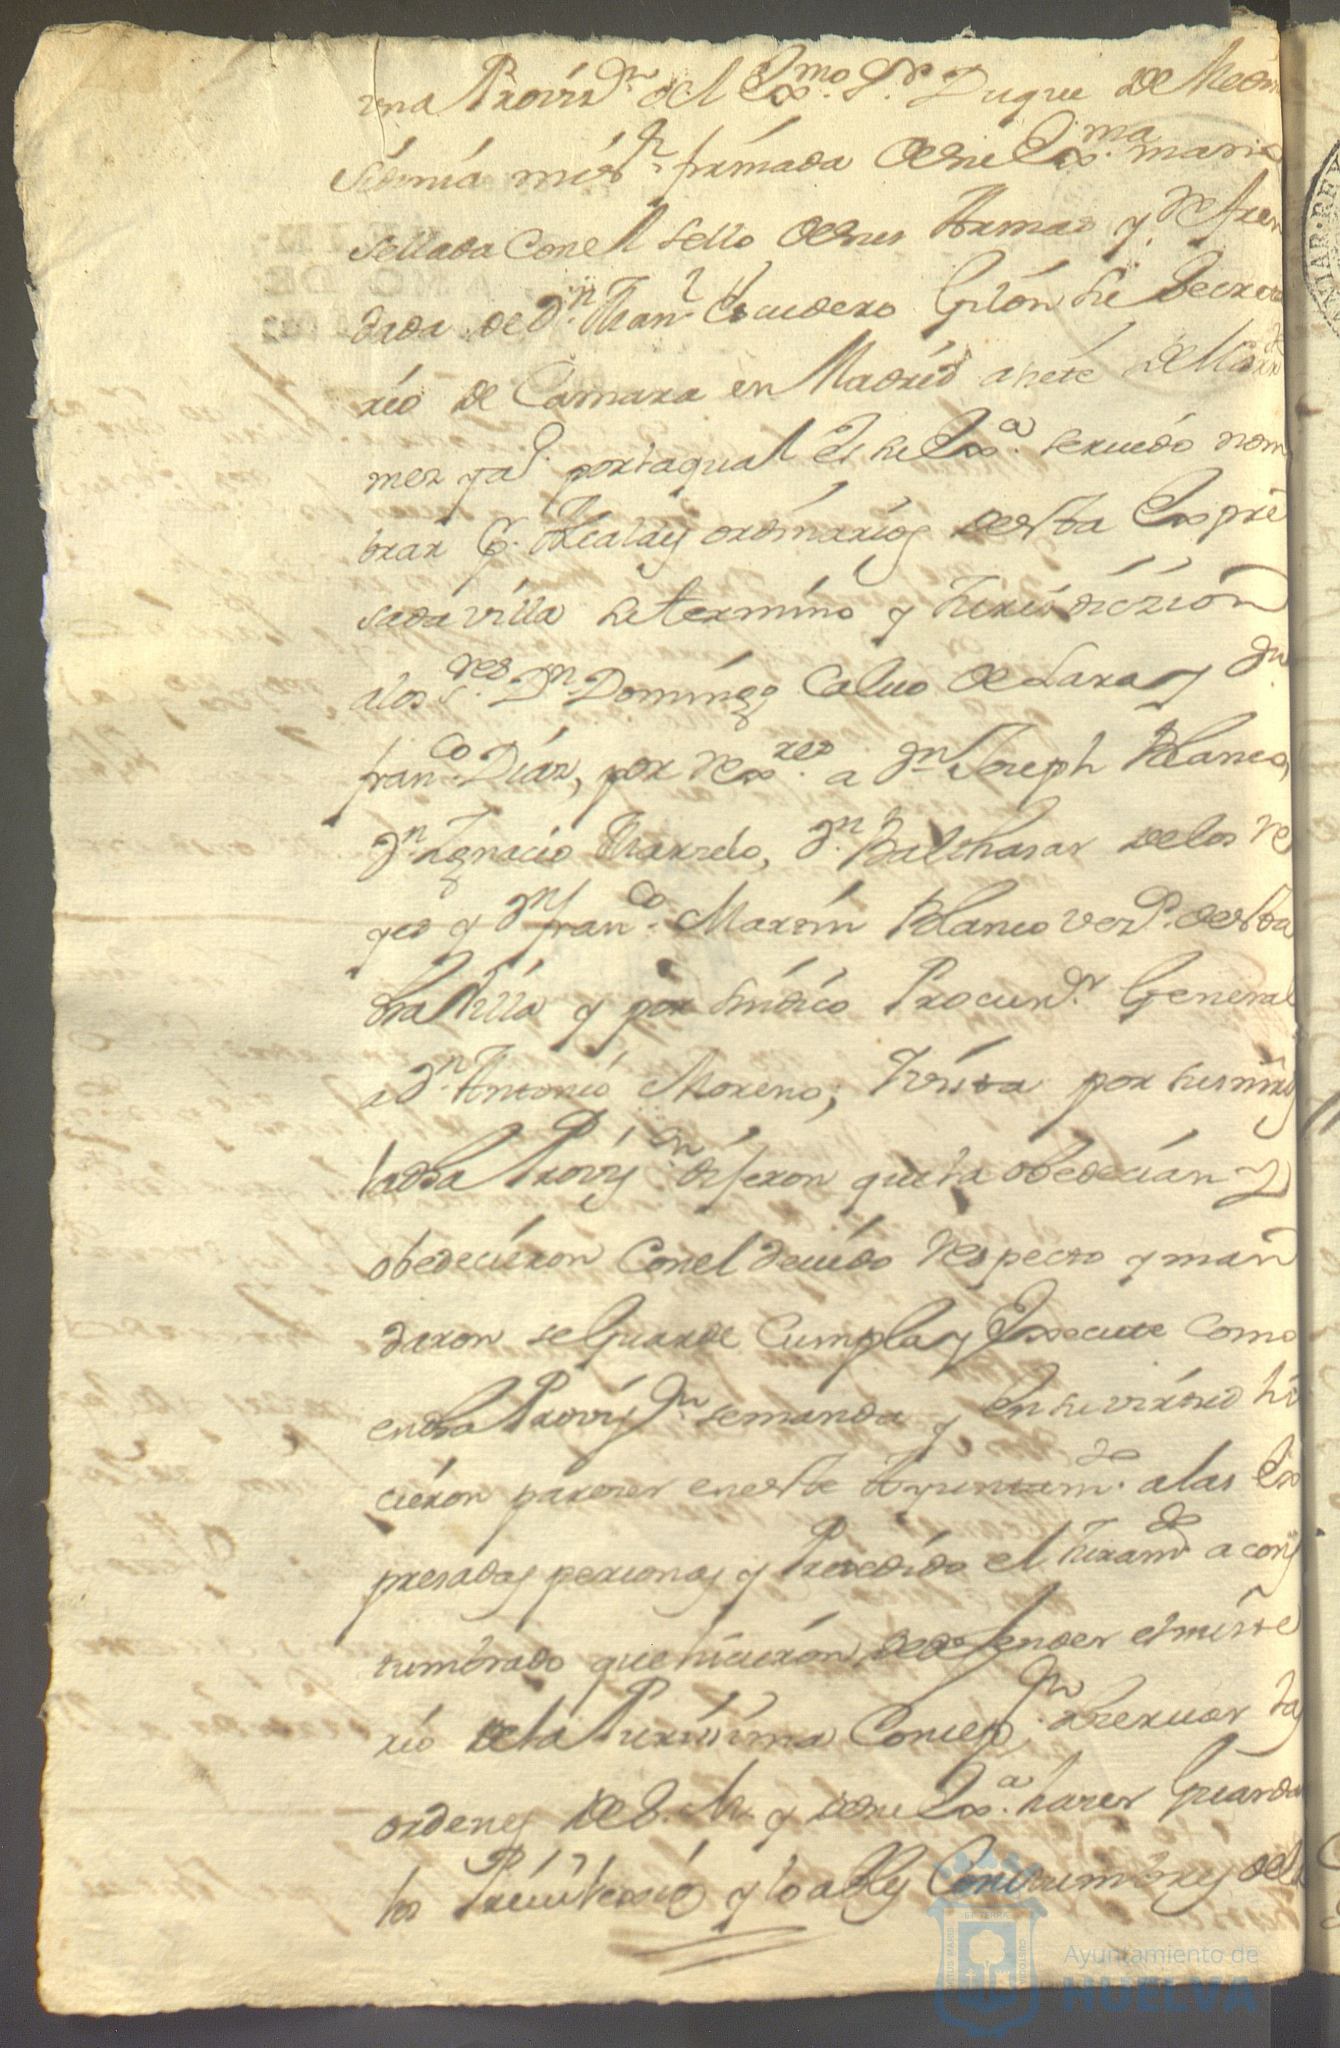 una Provis.n del Ex.mo S.r Duque de Medin
Sidonia mi s.r firmada de su Ex.ma mano
sellada con el sello de sus Armas y Refren
dada de D.n Man.l Escudero Gilón su Secreta
rio de Camara en Madrid a siete de
mes y a.o por la qual es su Ex.a seruido nom
brar p.r Alcaldes ordinarios de esta Expre
sada villa su termino y Jurisdiccion
a los s.res D.n Domingo Caluo de Lara y D.n
fran.co Díaz, por Rex.res a D.n Joseph Blanco,
D.n Ignacio Garrido, D.n Balthasar de los Re
yes y D.n fran.co Martin Blanco vez.s de esta
dha Villa y por sindico Procur.dr General
a D.n Antonio Moreno; Y vista por sus mrds
la dha Provis.n dijeron que la obedecian y
obedecieron con el deuido Respecto y man
daron se Guarde Cumpla y Execute como
en dha Provis.n se manda y en su virtud hi
cieron parecer en este Ayuntam.to a las Ex
presadas personas y Precedido el Juram.to acos
tumbrado que hicieron de defender el miste
rio de la Purissima Concep.n obseruar las
ordenes de S. M. y de su Ex.a hacer Guardar
los Priuilexios y loables Constumbres de
Ayuntamiento de
HUELVA